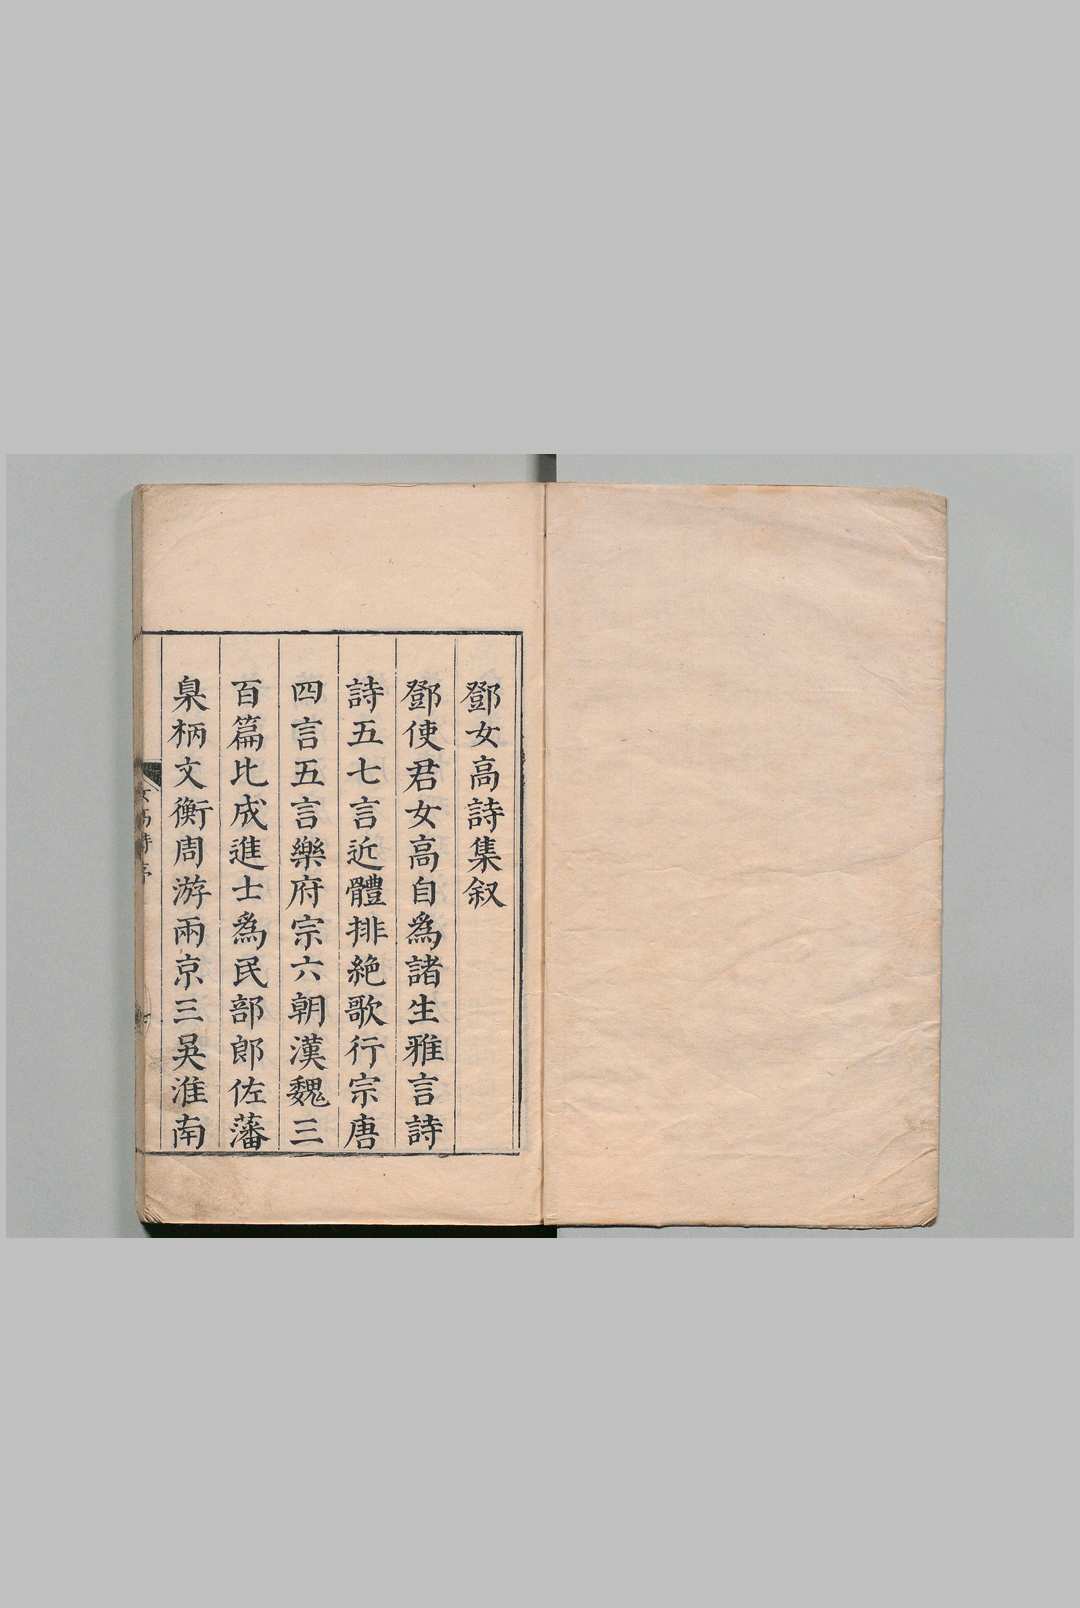 鄧女高詩集叙
鄧使君女高自為諸生雅言詩
詩五七言近體排絶歌行宗唐
四言五言樂府宗六朝漢魏三
百篇比成進士為民部郎佐藩
臬柄文衡周游兩京三吳淮南
女高詩序